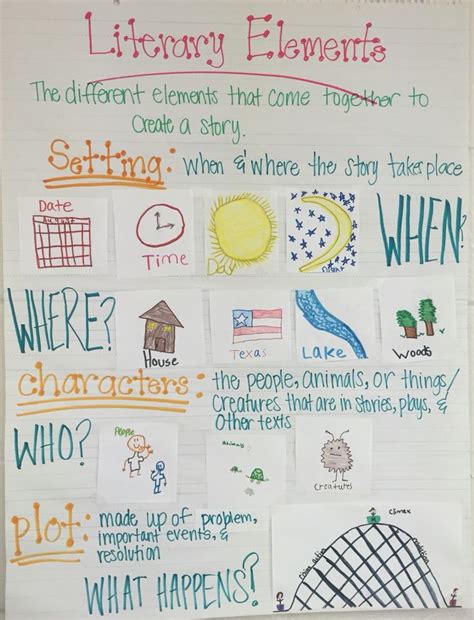 Literary Elements
The different elements that come together to
Create a story.
Setting: when & where the story takes place
Date
August
Time
Day
Night
WHEN?
WHERE?
House
Texas
Lake
Woods
characters: the people, animals, or things/
Creatures that are in stories, plays, &
other texts
WHO?
People
Animals
Creatures
plot: made up of problem,
important events, &
resolution
WHAT HAPPENS?
Climax
rising action